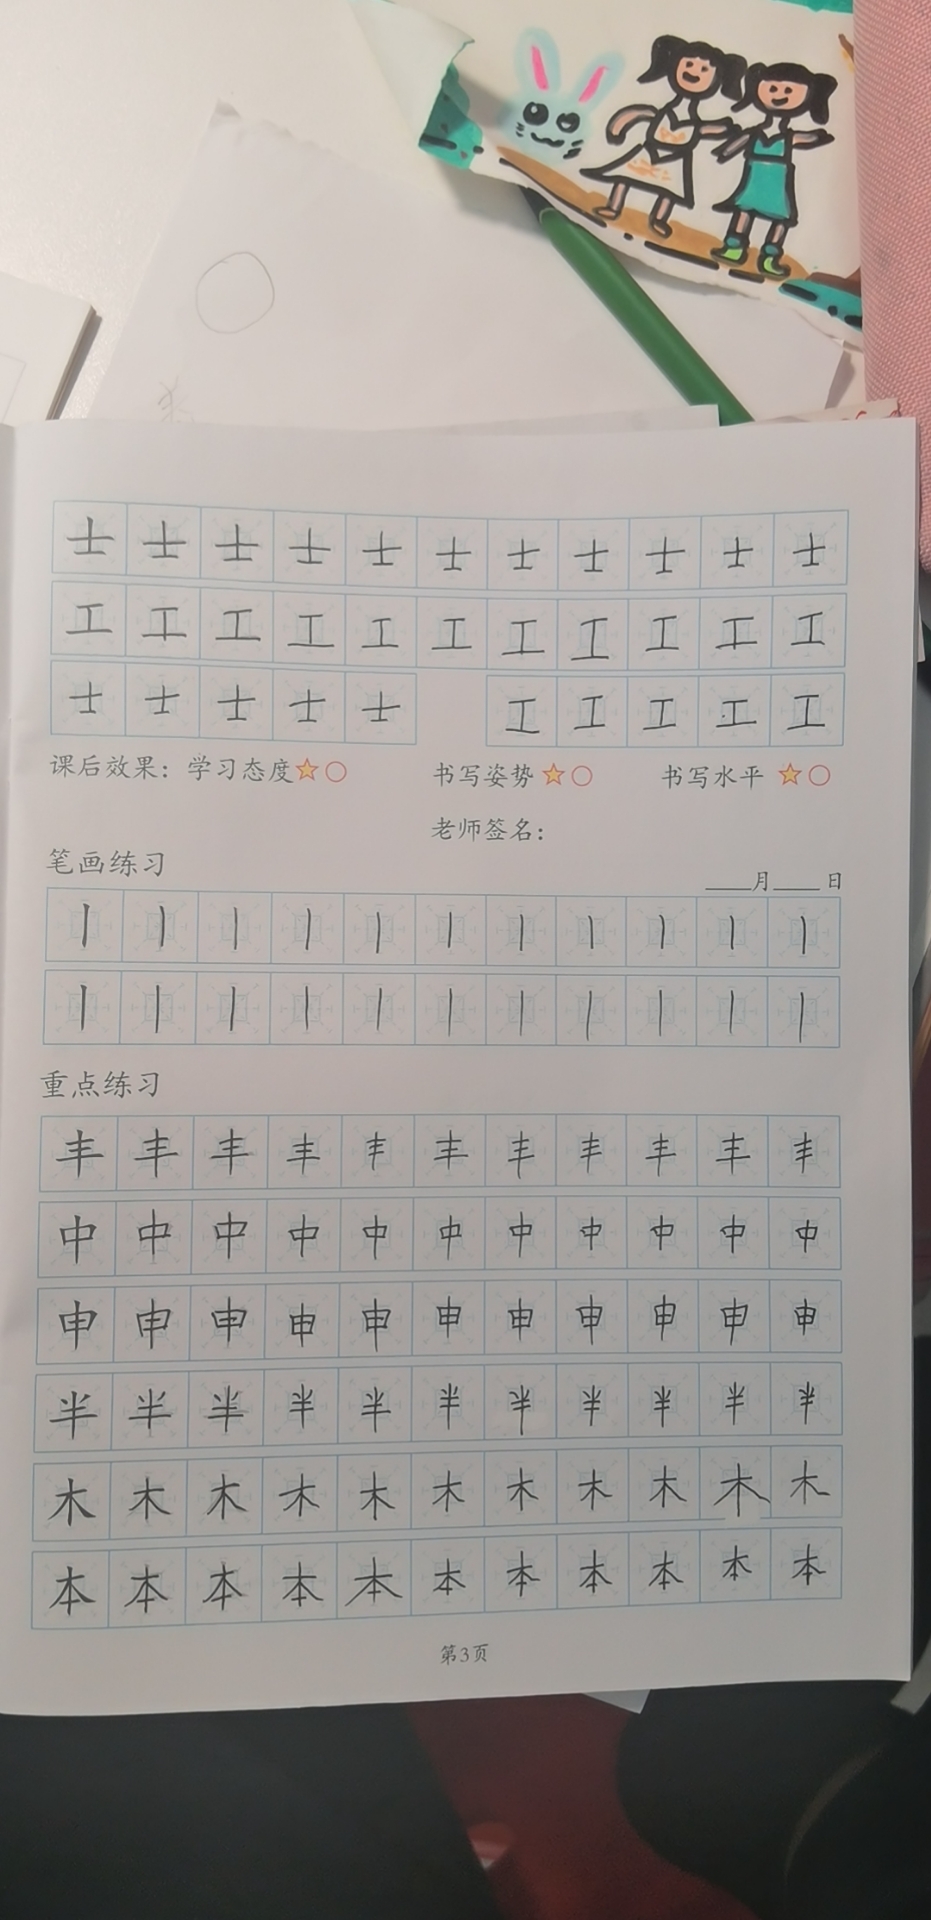 士士士士士士士士士士士
工工工工工工工工工工工
士士士士士 工工工工工
课后效果：学习态度 书写姿势 书写水平
老师签名：
笔画练习
月 日
丨丨丨丨丨丨丨丨丨丨丨
丨丨丨丨丨丨丨丨丨丨丨
重点练习
丰丰丰丰丰丰丰丰丰丰丰
中中中中中中中中中中中
申申申申申申申申申申申
半半半半半半半半半半半
木木木木木木木木木木木
本本本本本本本本本本本
第3页